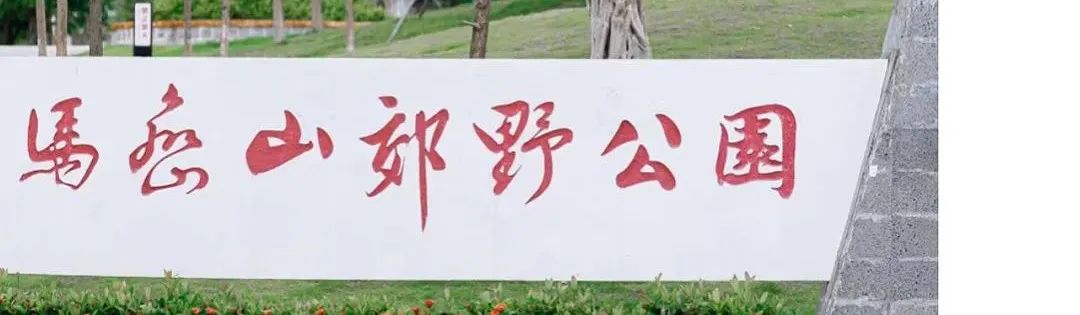 馬峦山郊野公園